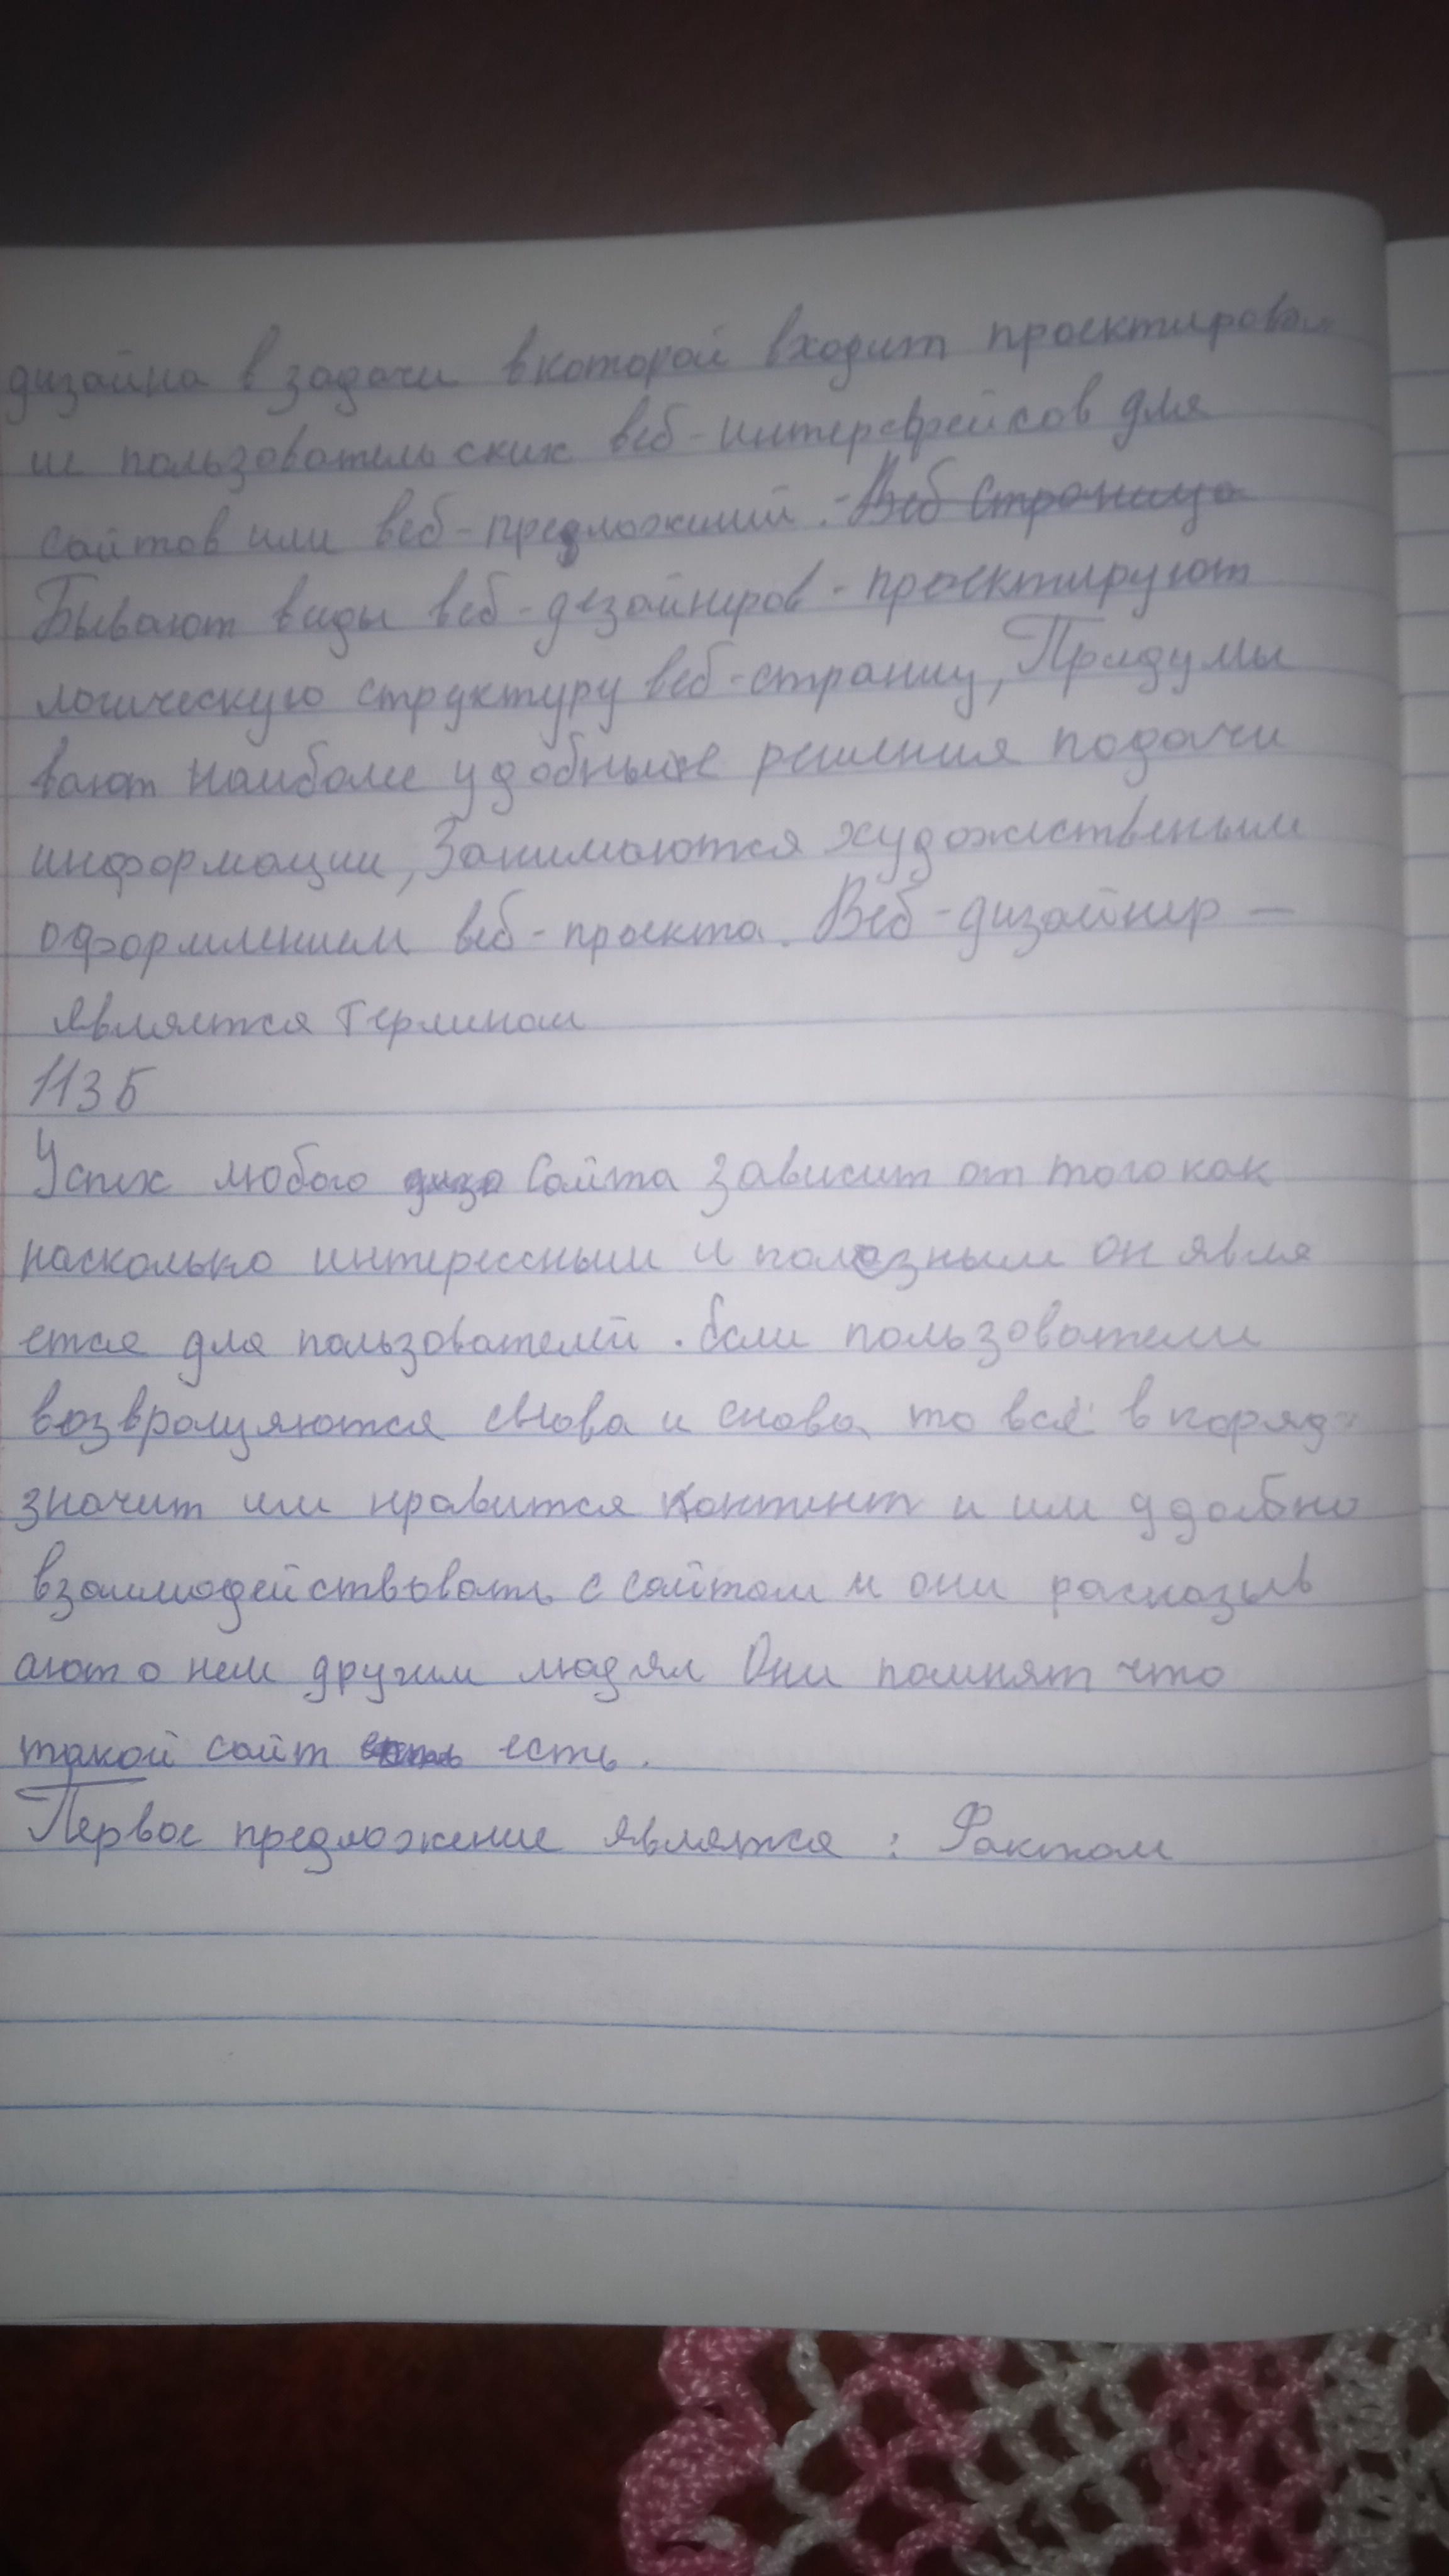 дизайна в задачи вкоторой входит проектирован
ие пользовательских веб-интерефейсов для
сайтов или веб-предложений. Веб страница
Бывают виды веб-дезайнеров - проектируют
логическую структуру веб-страниц, Придумы
вают наиболее удобные решения подачи
информации, Занимаются художественым
оформлением веб-проекта. Веб-дизайнер —
является термином
113Б
Успех любого диза Сайта зависит от того как
насколько интерессным и полезным он явля
ется для пользователей. Если пользователи
возвращяются снова и снова то всё в поряд
значит им нравится контент и им удобно
взаимодействовать с сайтом и они расказыв
ают о нем другим людям Они помнят что
такой сайт есть.
Первое предложение является : Фактом